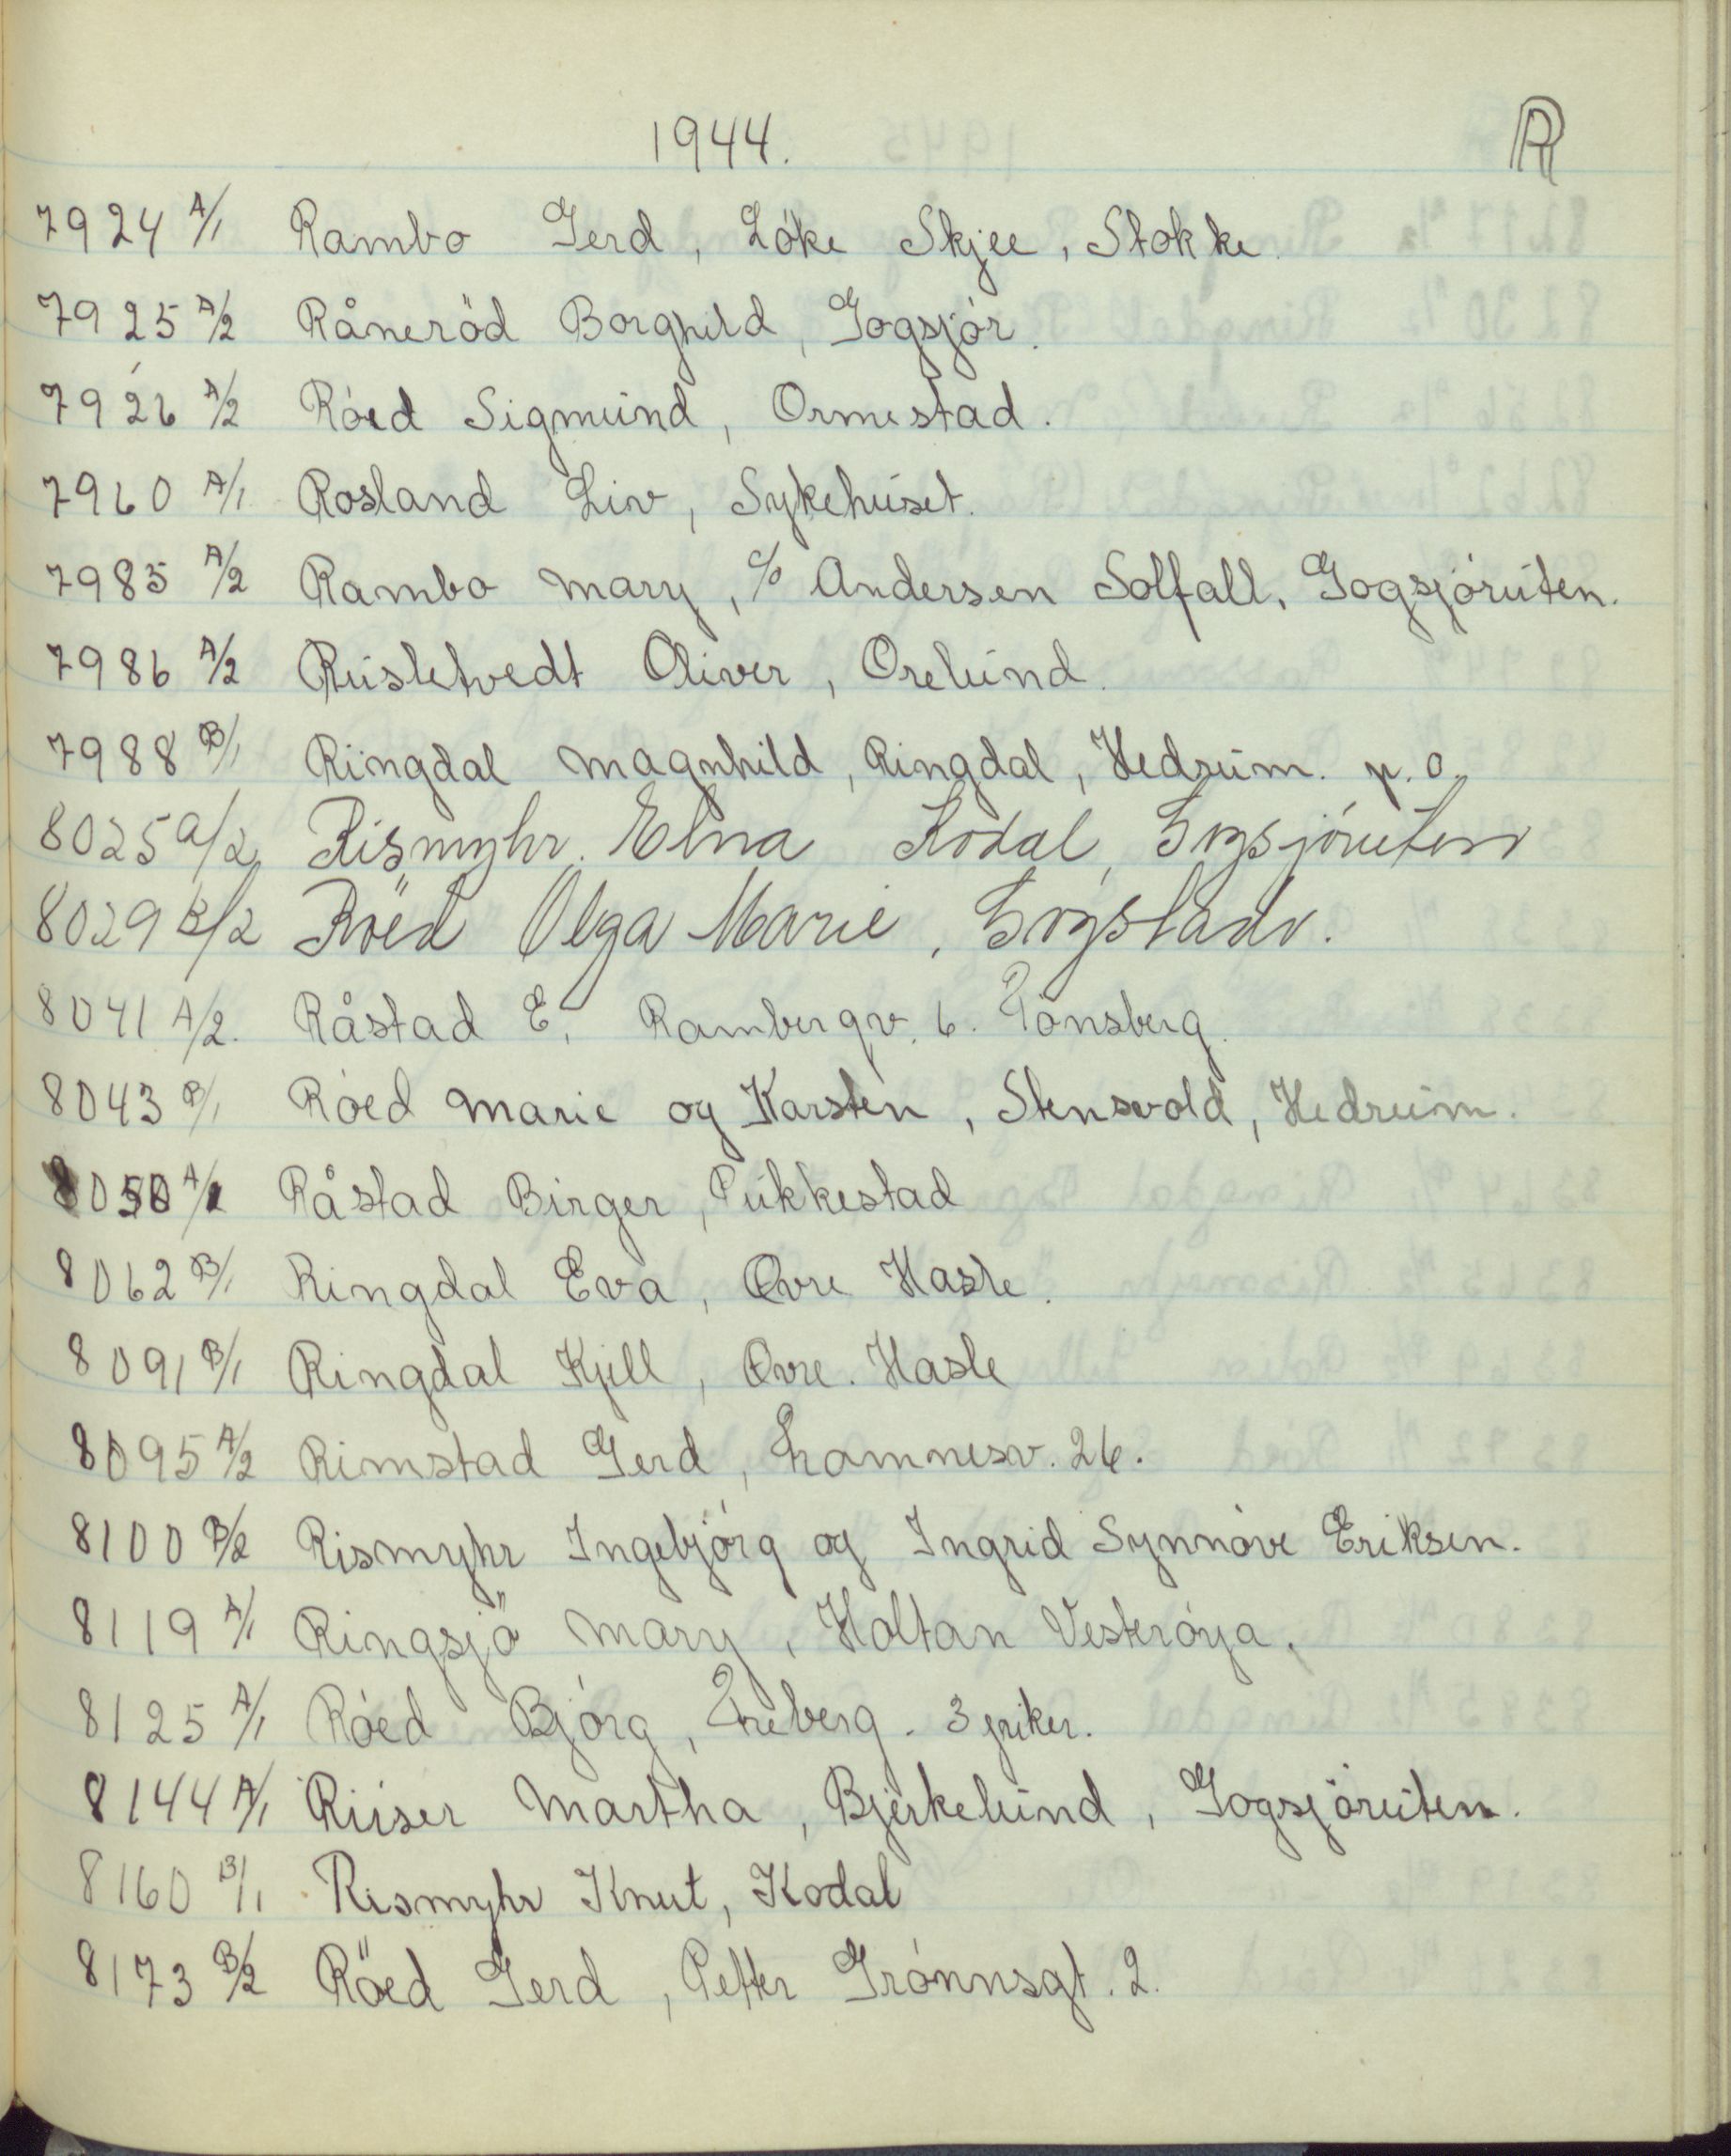 1944. R
7924 A/1 Rambo Gerd, Löke Skjee, Stokke.
7925 A/2 Råneröd Borghild, Gogsjör.
7926 A/2 Röed Sigmund, Ormestad.
7960 A/1 Rosland Liv, Sykehuset.
7985 A/2 Rambo Mary, c/o Andersen Solfall, Gogsjöruten.
7986 A/2 Rusletvedt Oliver, Orelund.
7988 B/1 Ringdal Magnhild, Ringdal, Hedrum. p.o.
8025 a/2 Rismyhr. Elna Kodal, Gogsjöruten
8029 B/2 Röed Olga Marie, Gogstadv.
8041 A/2. Råstad E, Rambergv. 6. Tönsberg.
8043 B/1 Röed Marie og Karsten, Stensvold, Hedrum.
8050 A/1 Råstad Birger, Pukkestad
8062 B/1 Ringdal Eva, Øvre Hasle.
8091 B/1 Ringdal Kjell, Øvre. Hasle
8095 A/2 Rimstad Gerd, Framnesv. 26.
8100 B/2 Rismyhr Ingebjörg og Ingrid Synnöve Eriksen.
8119 A/1 Ringsjö Mary, Holtan Vesteröya.
8125 A/1 Röed Bjórg, Breberg. 3 priker.
8144 A/1 Riiser Martha, Bjerkelund, Gogsjöruten.
8160 B/1 Rismyhr Knut, Kodal
8173 B/2 Röed Gerd, Petter Grönnsgt. 2.